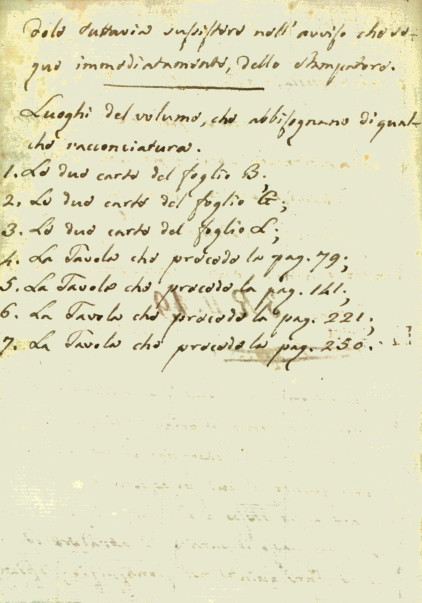 dolo tuttavia sussistere nell'avviso che se-
gue immediatamente, dello Stampatore.
Luoghi del volume, che abbisognano di qual-
che racconciatura.
1. Le due carte del foglio B.
2. Le due carte del foglio G;
3. Le due carte del foglio L;
4. La Tavola che precede la pag. 79;
5. La Tavola che precede la pag. 141;
6. La Tavola che precede la pag. 221;
7. La Tavola che precede la pag. 250.